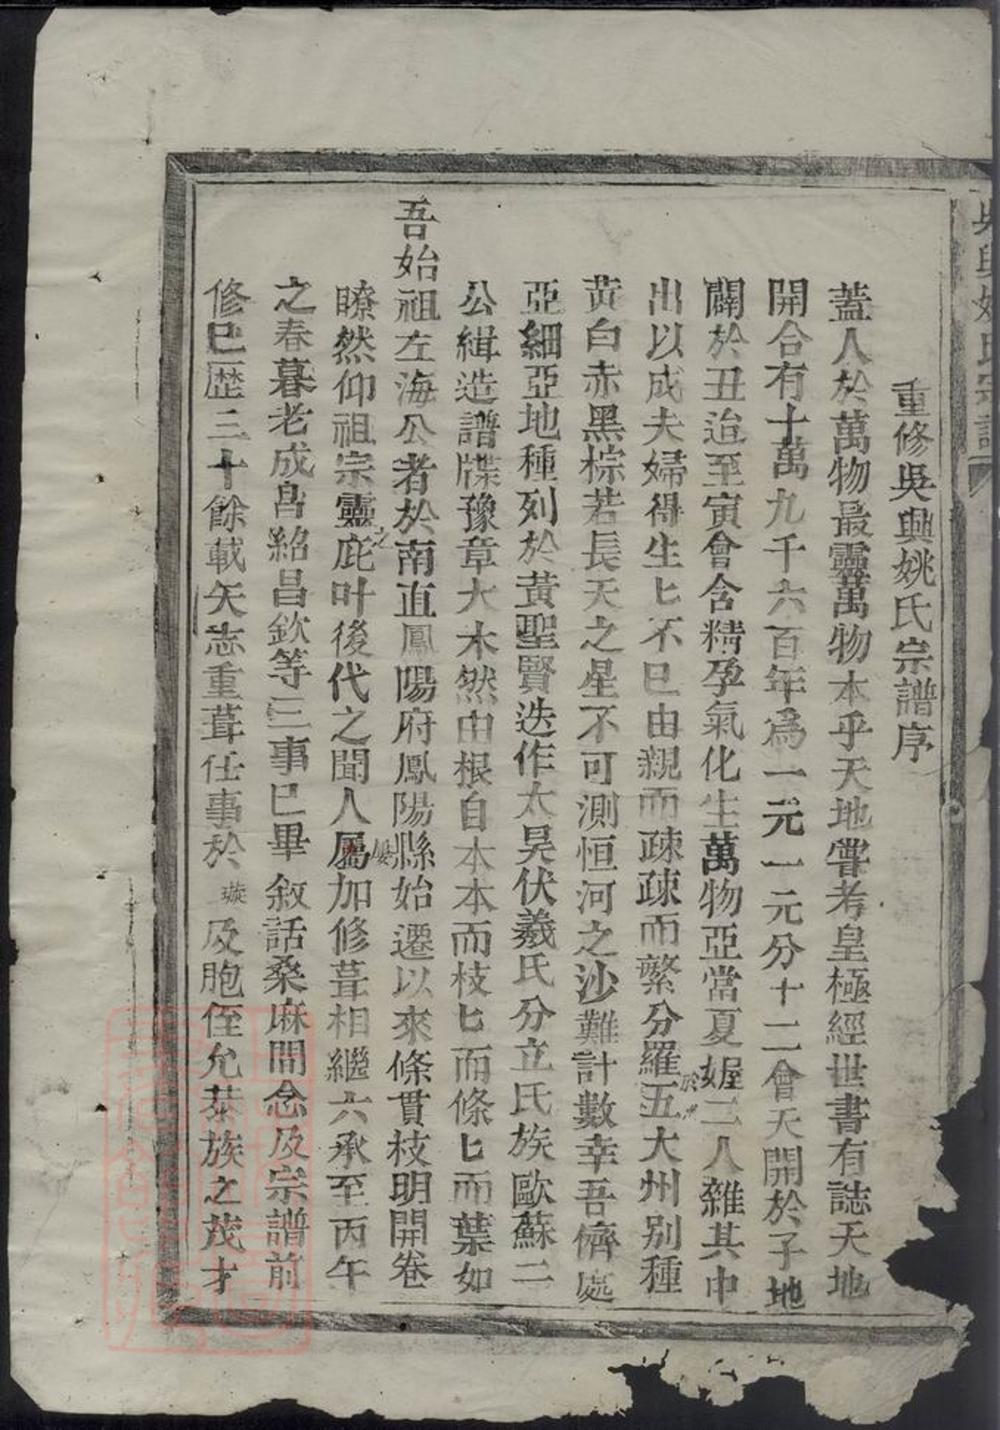 重修吳興姚氏宗譜序
蓋人於萬物最靈萬物本乎天地嘗考皇極經世書有誌天地
開合有十萬九千六百年為一元一元分十二會天開於子地
闢於丑迨至寅會含精孕氣化生萬物亞當夏娓二人雜其中
出以成夫婦得生匕不巳由親而疎疎而繁分羅於五大州別種
黃白赤黑棕若長天之星不可測恒河之沙難計數幸吾儕處
亞細亞地種列於黃聖賢迭作太昊伏羲氏分立氏族歐蘇二
公緝造譜牒豫章大木然由根自本本而枝匕而條匕而葉如
吾始祖左海公者於南直鳳陽府鳳陽縣始遷以來條貫枝明開卷
瞭然仰祖宗靈之庇叶後代之聞人屬加修葺相繼六承至丙午
之春暮老成昌紹昌欽等三事巳畢敘話桑麻間念及宗譜前
修巳歷三十餘載矢志重葺任事於璇及胞侄允恭族之茂才
吳興姚氏宗譜